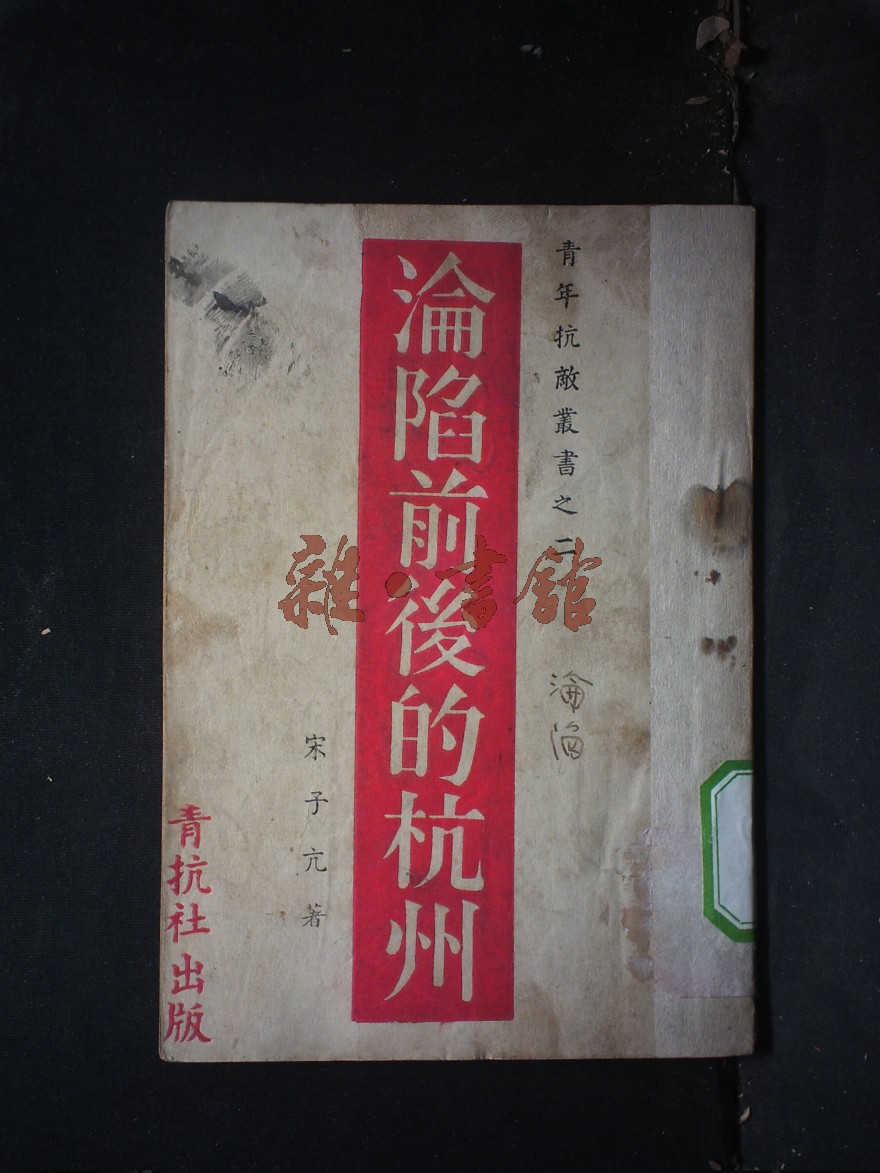 青年抗敵叢書之二
淪陷前後的杭州
宋子亢著
青抗社出版
淪陷
雜·書館